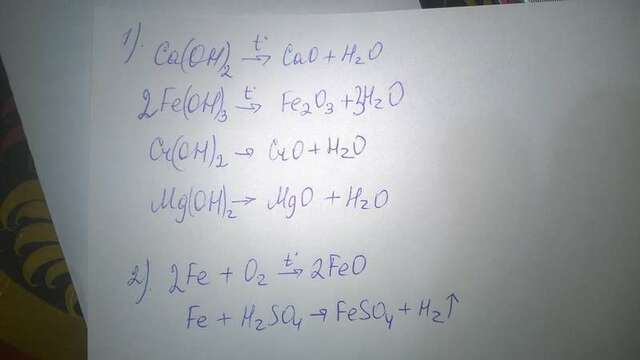 1). Ca(OH)₂ –t°→ CaO + H₂O
2Fe(OH)₃ –t°→ Fe₂O₃ + 3H₂O
Cr(OH)₂ → CrO + H₂O
Mg(OH)₂ → MgO + H₂O
2). 2Fe + O₂ –t°→ 2FeO
Fe + H₂SO₄ → FeSO₄ + H₂↑